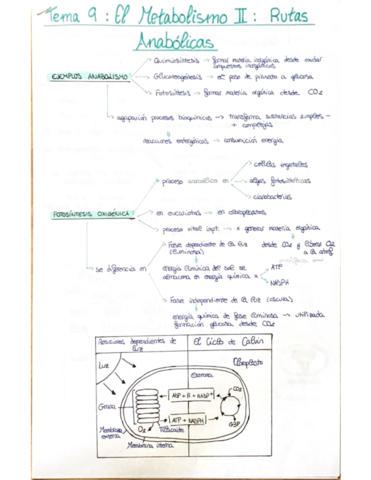 Tema 9: El Metabolismo II: Rutas
Anabólicas
Quimiosíntesis → formar materia inorgánica desde
EJEMPLOS ANABOLISMO
Gluconeogénesis → piruvato a glucosa
Fotosíntesis → formar materia orgánica desde CO2
agrupación procesos bioquímicos → transforma sustancias simples →
complejas
reacciones endergónicas → consumición energía
células vegetales
proceso anabólico en → algas fotosintéticas
cianobacterias
FOTOSÍNTESIS OXIGÉNICA
en eucariotas → en cloroplastos
proceso vital impt. → x generar materia orgánica
desde CO2 y liberar O2
a la atmf.
se diferencia en
Fase dependiente de la luz
(luminosa)
energía lumínica del sol se
almacena en energía química x
ATP
NADPH
Fase independiente de la luz (oscura)
energía química de fase luminosa → utilizada
formación glucosa desde CO2
Reacciones dependientes de
luz
El Ciclo de Calvin
Cloroplasto
Luz
Estroma
ADP + Pi + NADP+
CO2
Grana
ATP + NADPH
O2
Tilacoide
G3P
Membrana
externa
Membrana interna